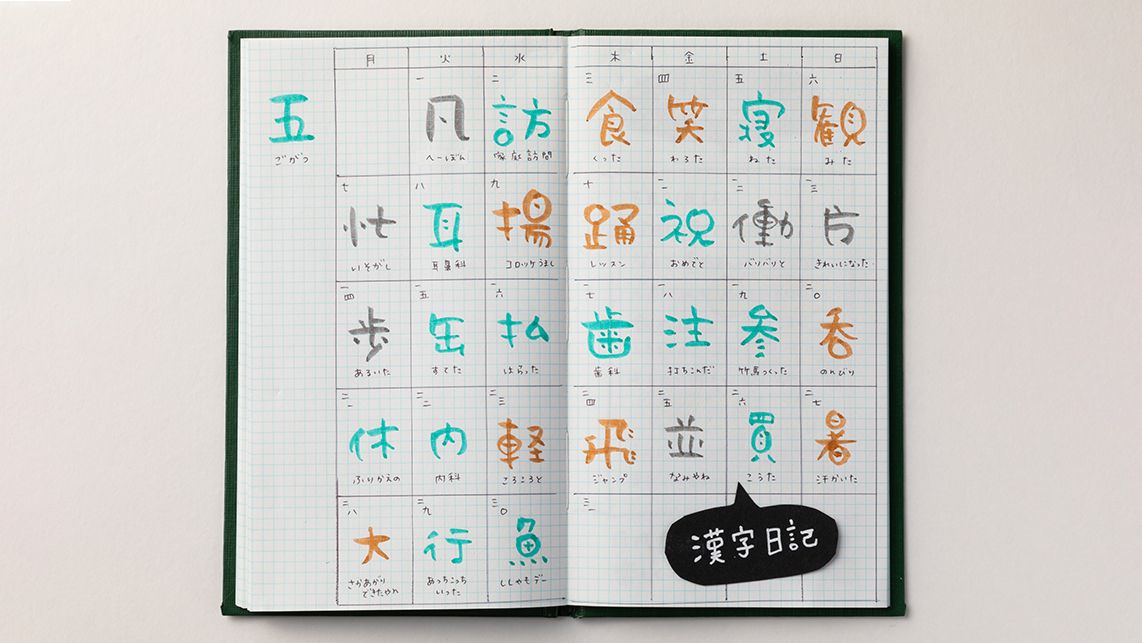 月 火 水 木 金 土 日
五
ごがつ
一 二 三 四 五 六
凡 訪 食 笑 寝 観
へーぼん 家庭訪問 くった わろた ねた みた
七 八 九 十 一一 一二 一三
忙 耳 揚 踊 祝 働 片
いそがし 耳鼻科 コロッケうまし レッスン おめでと バリバリと きれいになった
一四 一五 一六 一七 一八 一九 二〇
歩 缶 払 歯 注 参 呑
あるいた すてた はらった 歯科 打ちこんだ 竹馬つくった のんびり
二一 二二 二三 二四 二五 二六 二七
休 内 軽 飛 並 買 暑
ふりかえの 内科 ころころと ジャンプ なみやね こうた 汗かいた
二八 二九 三〇 三一
大 行 魚
さかあがり
できたやれ
あっちこっち
いった
ししゃもデー
漢字日記